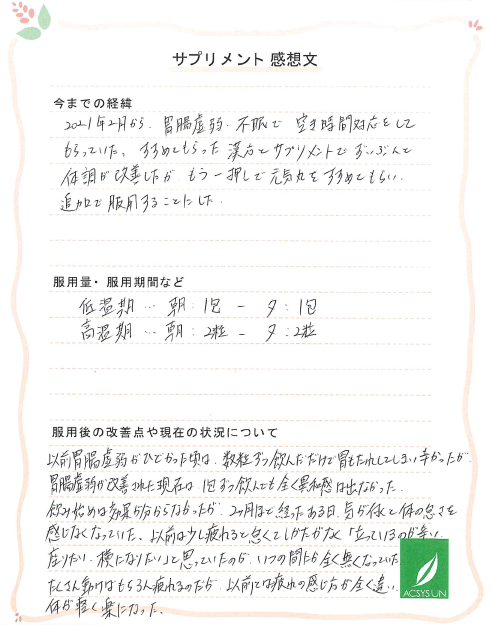 サプリメント 感想文
今までの経緯
2021年2月から、胃腸虚弱、不眠で 空き時間対応をして
もらっていた。すすめてもらった漢方とサプリメントでずいぶんと
体調が改善したが もう一押しで元気丸をすすめてもらい、
追加で服用することにした。
服用量・服用期間など
低温期… 朝：1包 － 夕：1包
高温期… 朝：2粒 － 夕：2粒
服用後の改善点や現在の状況について
以前胃腸虚弱がひどかった頃は、数粒ずつ飲んだだけで胃もたれしてしまい辛かったが
胃腸虚弱が改善された現在は 1包ずつ飲んでも全く異和感は出なかった。
飲み始めは効果が分からなかったが、2ヶ月ほど経ったある日、気が付くと体の怠さを
感じなくなっていた。以前は少し疲れると怠くてしかたがなく「立っているのが辛い、
座りたい、横になりたい」と思っていたのが、いつの間にか全く無くなっていた
たくさん動けばもちろん疲れるのだが、以前とは疲れの感じ方が全く違い、
体が軽く楽になった。
ACSYS UN